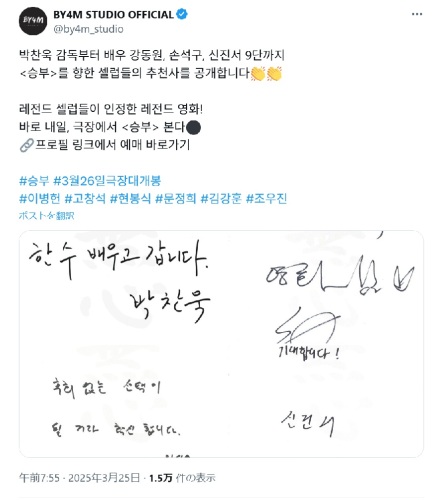 BY4M STUDIO OFFICIAL
@by4m_studio
박찬욱 감독부터 배우 강동원, 손석구, 신진서 9단까지
<승부>를 향한 셀럽들의 추천사를 공개합니다👏👏
레전드 셀럽들이 인정한 레전드 영화!
바로 내일, 극장에서 <승부> 본다⚫
🔗프로필 링크에서 예매 바로가기
#승부 #3월26일극장대개봉
#이병헌 #고창석 #현봉식 #문정희 #김강훈 #조우진
ポストを翻訳
한 수 배우고 갑니다.
박찬욱
기대합니다!
후회 없는 선택이
될 거라 확신 합니다.
신진서
午前7:55 · 2025年3月25日 · 1.5万 件の表示